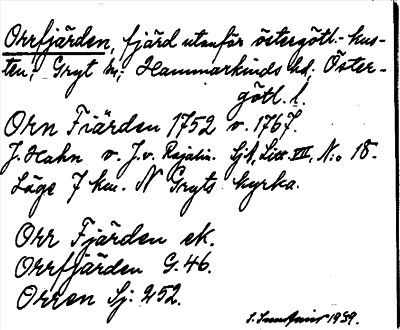 Orrfjärden, fjärd utanför östergötl.-kus-
ten, Gryt sn; Hammarkinds hd; Öster-
götl. l.
Orn Fiärden 1752 v. 1767.
J. Hahn v. J. v. Rajalin. Sjk, Litt. VII, N:o 18.
Läge 7 km. N Gryts kyrka.
Orr Fjärden ek.
Orrfjärden G. 46.
Orren Sj: 252.
1939.